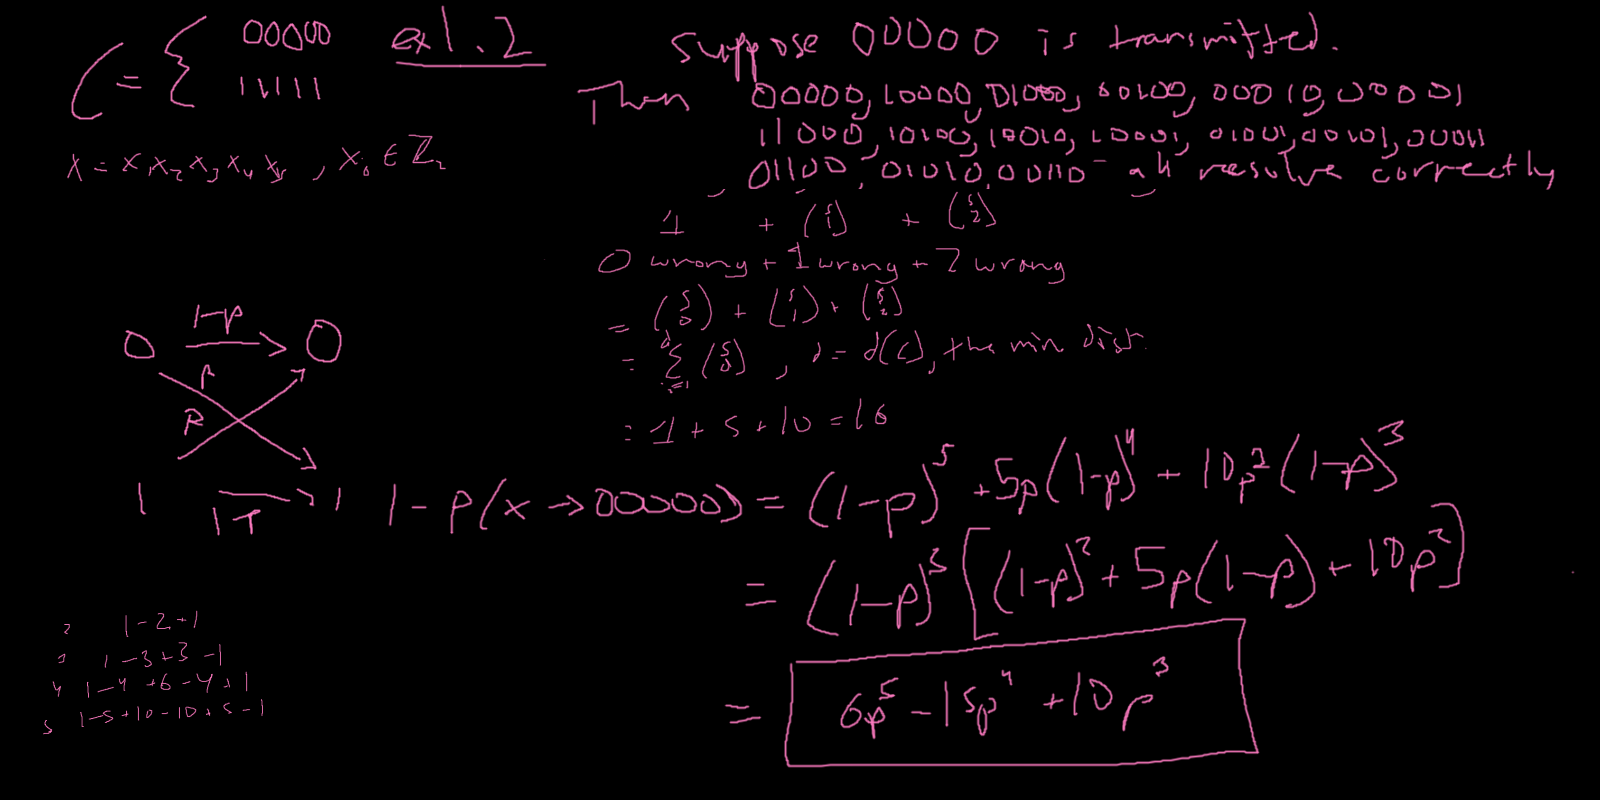 C = { 00000 11111
ex 1.2
x = x₁x₂x₃x₄x₅ , xᵢ ∈ ℤ₂
Suppose 00000 is transmitted.
Then 00000, 10000, 01000, 00100, 00010, 00001
11000, 10100, 10010, 10001, 01001, 00101, 00011
, 01100, 01010, 00110 - all resolve correctly
1 + (5 1) + (5 2)
0 wrong + 1 wrong + 2 wrong
= (5 0) + (5 1) + (5 2)
= Σ (5 d) , d = d(C), the min dist.
= 1 + 5 + 10 = 16
0 1-p → 0
p
p
1 1-p → 1
1 - p(x → 00000) = (1-p)⁵ + 5p(1-p)⁴ + 10p²(1-p)³
= (1-p)³ [(1-p)² + 5p(1-p) + 10p²]
= 6p⁵ - 15p⁴ + 10p³
2 1-2+1
3 1-3+3-1
4 1-4+6-4+1
5 1-5+10-10+5-1